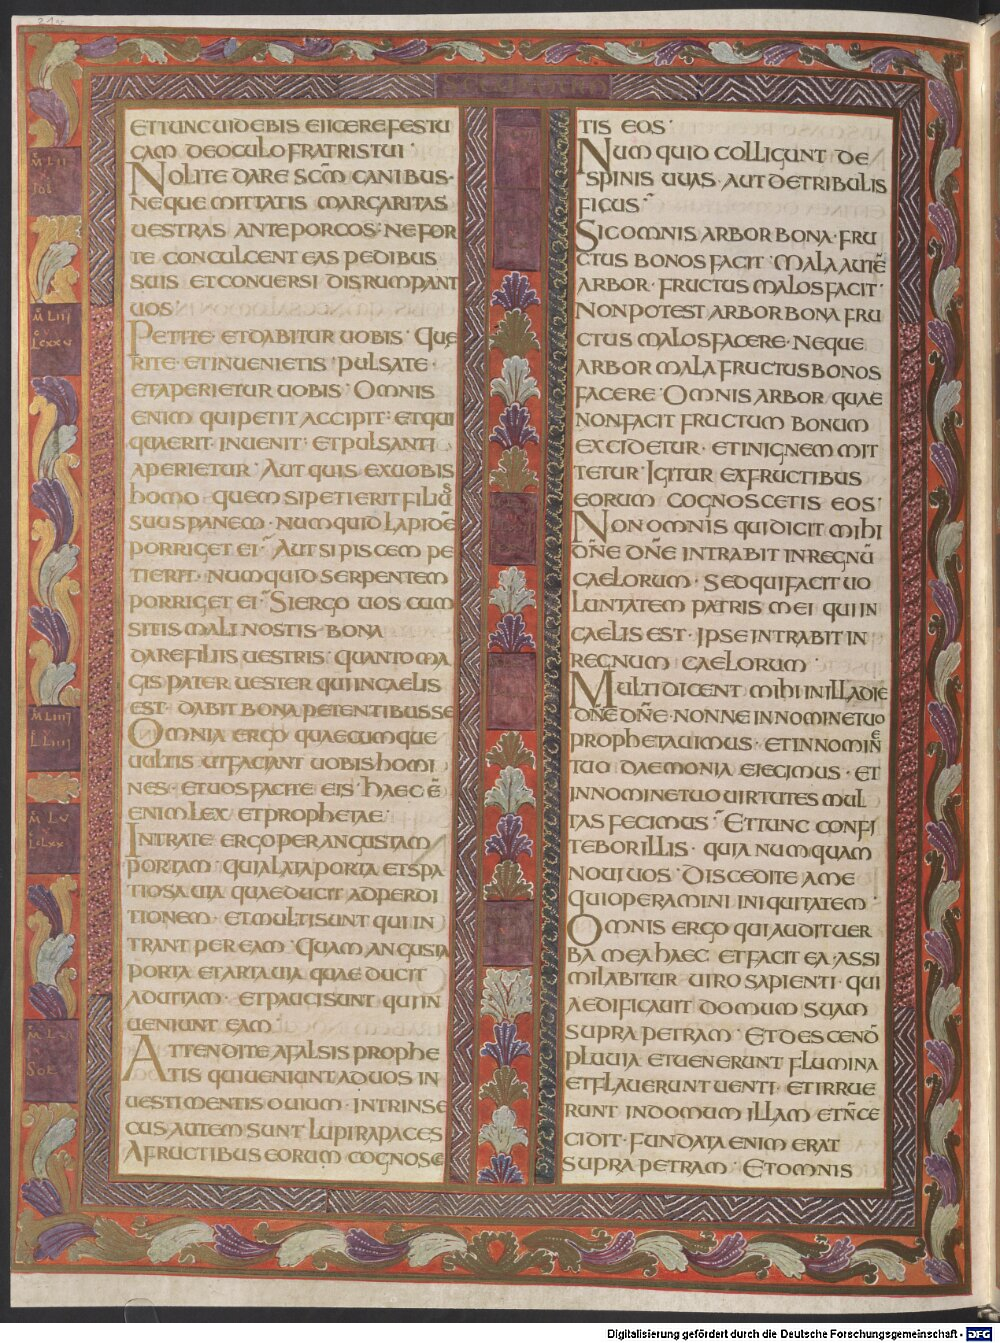 ETTUNCUIDEBIS EIICEREFESTU
CAM DEOCULO FRATRISTUI ·
NOLITE DARE SCM̄ CANIBUS ·
NEQUE MITTATIS MARGARITAS
UESTRAS ANTE PORCOS · NE FOR
TE CONCULCENT EAS PEDIBUS
SUIS ET CONUERSI DISRUMPANT
UOS ·
PETITE ETDABITUR UOBIS · QUE
RITE · ET INUENIETIS · PULSATE ·
ETAPERIETUR UOBIS · OMNIS
ENIM QUI PETIT ACCIPIT · ETQUI
QUAERIT · INUENIT · ETPULSANTI
APERIETUR · AUT QUIS EXUOBIS
HOMO · QUEM SI PETIERIT FILIUS
SUUS PANEM · NUMQUID LAPIDĒ
PORRIGET EI · AUT SI PISCEM PE
TIERIT · NUMQUID SERPENTEM
PORRIGET EI · SI ERGO UOS CUM
SITIS MALI NOSTIS · BONA
DARE FILIIS UESTRIS · QUANTO MA
GIS PATER UESTER QUI INCAELIS
EST · DABIT BONA PETENTIBUS SE
OMNIA ERGO QUAECUMQUE
UULTIS UT FACIANT UOBIS HOMI
NES · ET UOS FACITE EIS · HAEC Ē
ENIM LEX ET PROPHETAE ·
INTRATE ERGO PER ANGUSTAM
PORTAM · QUIA LATA PORTA ET SPA
TIOSA UIA QUAE DUCIT AD PERDI
TIONEM · ET MULTI SUNT QUI IN
TRANT PER EAM · QUAM ANGUSTA
PORTA ET ARTA UIA QUAE DUCIT
AD UITAM · ET PAUCI SUNT QUI IN
UENIUNT EAM
ATTENDITE A FALSIS PROPHE
TIS QUI UENIUNT AD UOS IN
UESTIMENTIS OUIUM · INTRINSE
CUS AUTEM SUNT LUPI RAPACES
A FRUCTIBUS EORUM COGNOSCE
TIS EOS ·
NUMQUID COLLIGUNT DE
SPINIS UUAS · AUT DE TRIBULIS
FICUS ·
SIC OMNIS ARBOR BONA · FRU
CTUS BONOS FACIT · MALA AUTĒ
ARBOR · FRUCTUS MALOS FACIT ·
NON POTEST ARBOR BONA FRU
CTUS MALOS FACERE · NEQUE
ARBOR MALA FRUCTUS BONOS
FACERE · OMNIS ARBOR QUAE
NON FACIT FRUCTUM BONUM
EXCIDETUR · ET IN IGNEM MIT
TETUR · IGITUR EX FRUCTIBUS
EORUM COGNOSCETIS EOS ·
NON OMNIS QUI DICIT MIHI
DN̄E DN̄E INTRABIT IN REGNŪ
CAELORUM · SED QUI FACIT UO
LUNTATEM PATRIS MEI QUI IN
CAELIS EST · IPSE INTRABIT IN
REGNUM CAELORUM ·
MULTI DICENT MIHI IN ILLA DIE
DN̄E DN̄E · NONNE IN NOMINE TUO
PROPHETAUIMUS · ET IN NOMINE
TUO DAEMONIA EIECIMUS · ET
IN NOMINE TUO UIRTUTES MUL
TAS FECIMUS · ET TUNC CONFI
TEBOR ILLIS · QUIA NUMQUAM
NOUI UOS · DISCEDITE A ME
QUI OPERAMINI INIQUITATEM ·
OMNIS ERGO QUI AUDIT UER
BA MEA HAEC · ET FACIT EA · ASSI
MILABITUR UIRO SAPIENTI · QUI
AEDIFICAUIT DOMUM SUAM
SUPRA PETRAM · ET DESCENDIT
PLUUIA ET UENERUNT FLUMINA
ET FLAUERUNT UENTI · ET IRRUE
RUNT IN DOMUM ILLAM ET N̄ CE
CIDIT · FUNDATA ENIM ERAT
SUPRA PETRAM · ET OMNIS
Digitalisierung gefördert durch die Deutsche Forschungsgemeinschaft - DFG